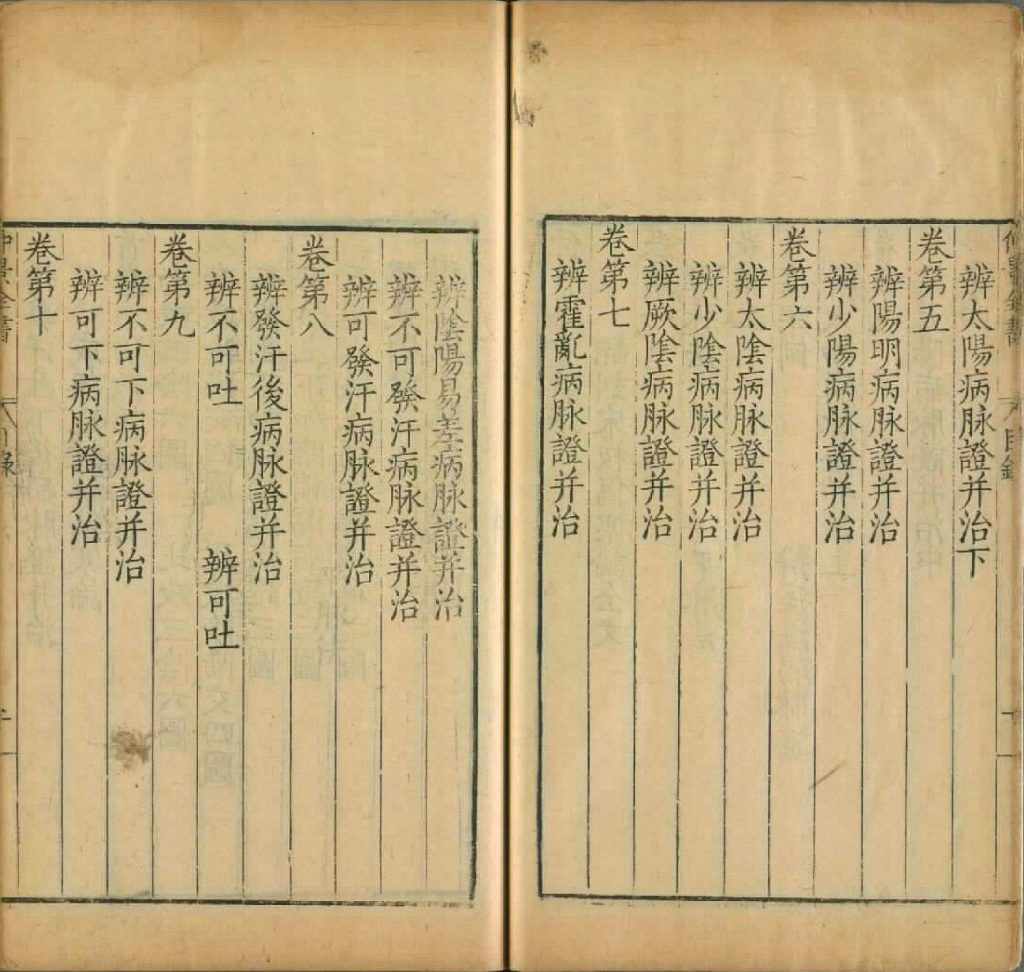 辨太陽病脉證并治下
卷第五
辨陽明病脉證并治
辨少陽病脉證并治
卷第六
辨太陰病脉證并治
辨少陰病脉證并治
辨厥陰病脉證并治
卷第七
辨霍亂病脉證并治
辨陰陽易差病脉證并治
辨不可發汗病脉證并治
辨可發汗病脉證并治
卷第八
辨發汗後病脉證并治
辨不可吐 辨可吐
卷第九
辨不可下病脉證并治
辨可下病脉證并治
卷第十